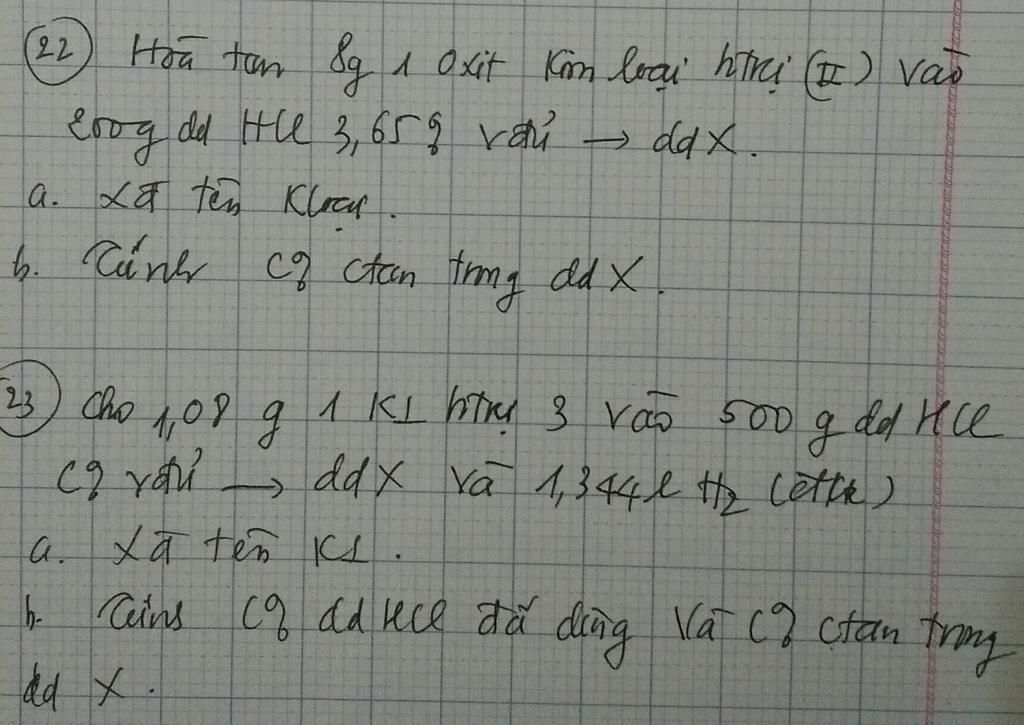 22 Hoà tan 8g 1 oxit kim loại htrị (II) vào
200g dd HCl 3,65% vđủ → dd X.
a. XĐ tên Kloại.
b. Tính C% ctan trong dd X.
23 Cho 1,08 g 1 KL htrị 3 vào 500 g dd HCl
C% vđủ → dd X và 1,344 l H2 (đktc)
a. XĐ tên KL.
b. Tính C% dd HCl đã dùng và C% ctan trong
dd X.